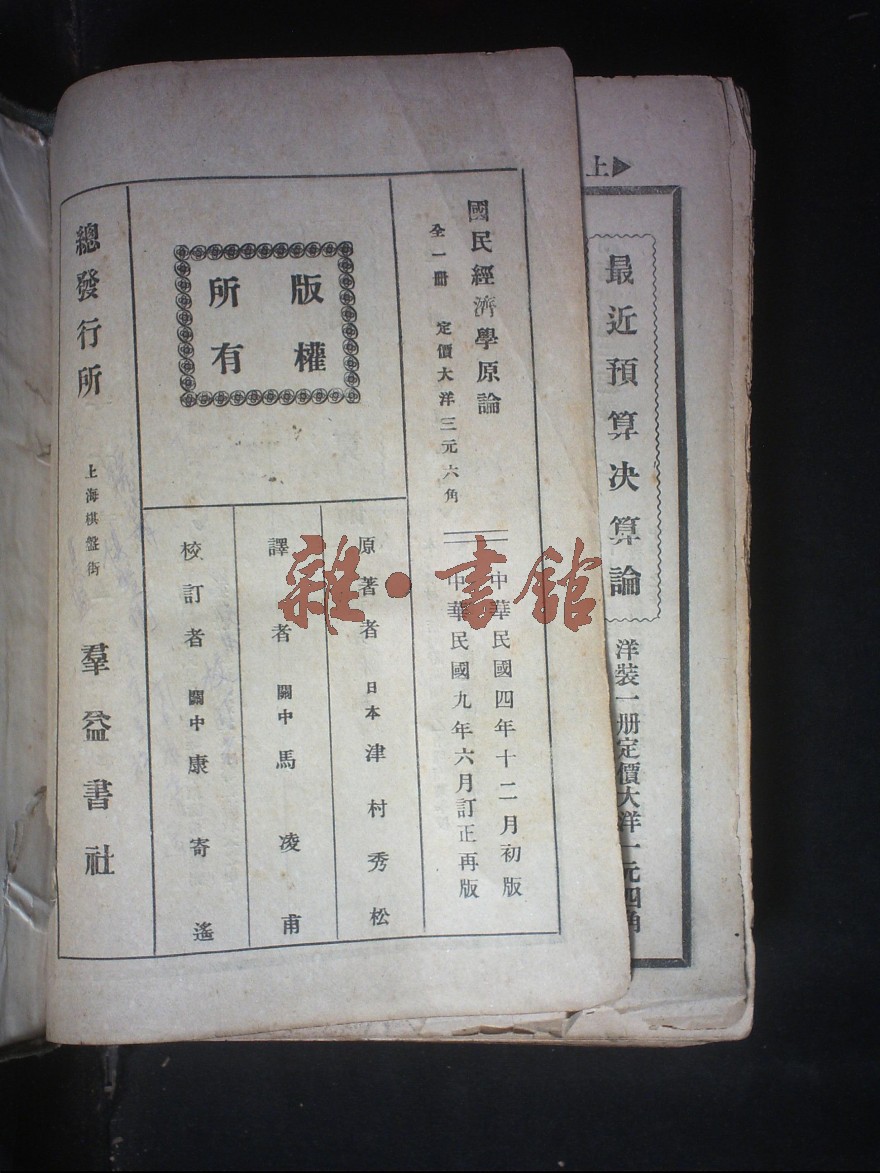 上
最近預算決算論
洋裝一册定價大洋一元四角
國民經濟學原論
全一册 定價大洋三元六角
中華民國四年十二月初版
中華民國九年六月訂正再版
版權
所有
原著者 日本 津村秀松
譯者 關中 馬凌甫
校訂者 關中 康寄遙
總發行所 上海棋盤街 羣益書社
雜·書館